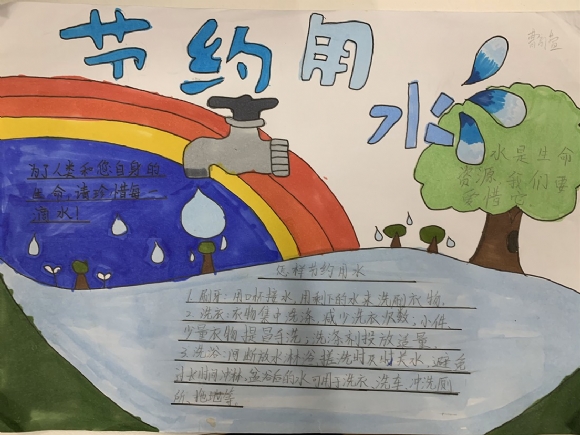 节约用水
为了人类和您自身的
生命,请珍惜每一
滴水!
水是生命
资源我们要
爱惜它
怎样节约用水
1.刷牙:用口杯接水,用剩下的水来洗刷衣物。
2.洗衣:衣物集中洗涤,减少洗衣次数,小件、
少量衣物提倡手洗,洗涤剂投放适量。
3.洗浴:间断放水淋浴搓洗时及时关水,避免
过长时间冲淋,盆浴后的水可用于洗衣、洗车、冲洗厕
所、拖地等。